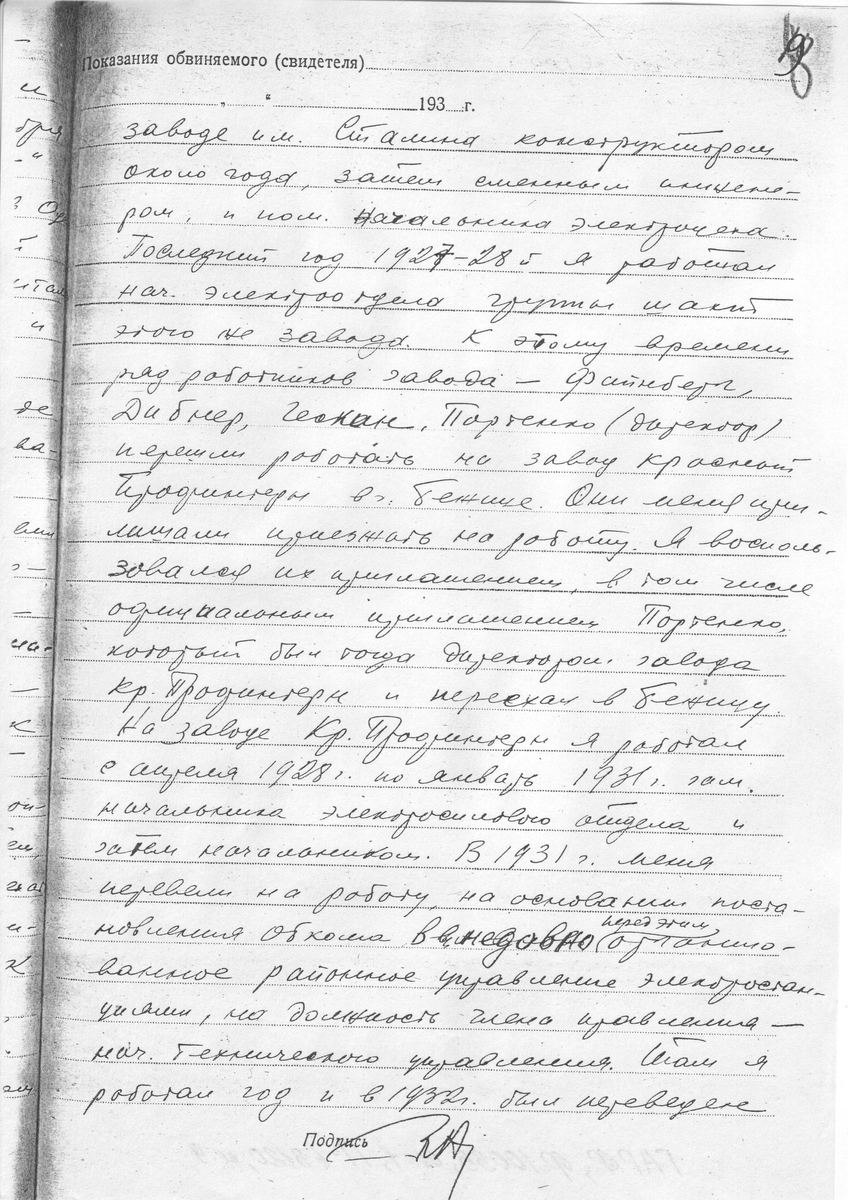 Показания обвиняемого (свидетеля)
„ “ 193 г.
заводе им. Сталина конструктором
около года, затем сменным инжене-
ром, и пом. начальника электроцеха.
Последний год 1927-28 г я работал
нач. электроотдела группы шахт
этого же завода. К этому времени
ряд работников завода — Файнберг,
Дибнер, Гескан, Портенко (директор)
перешли работать на завод Красный
Профинтерн в г. Бежице. Они меня при-
глашали приезжать на работу. Я восполь-
зовался их приглашением, в том числе
официальным приглашением Портенко,
который был тогда директором завода
Кр. Профинтерн и переехал в Бежицу.
На заводе Кр. Профинтерн я работал
с апреля 1928 г. по январь 1931 г. зам.
начальника электросилового отдела и
затем начальником. В 1931 г. меня
перевели на работу, на основании поста-
новления Обкома в недавно (перед этим) организо-
ванное районное управление электростан-
циями, на должность члена правления —
нач. технического управления. Там я
работал год и в 1932 г. был переведен
Подпись